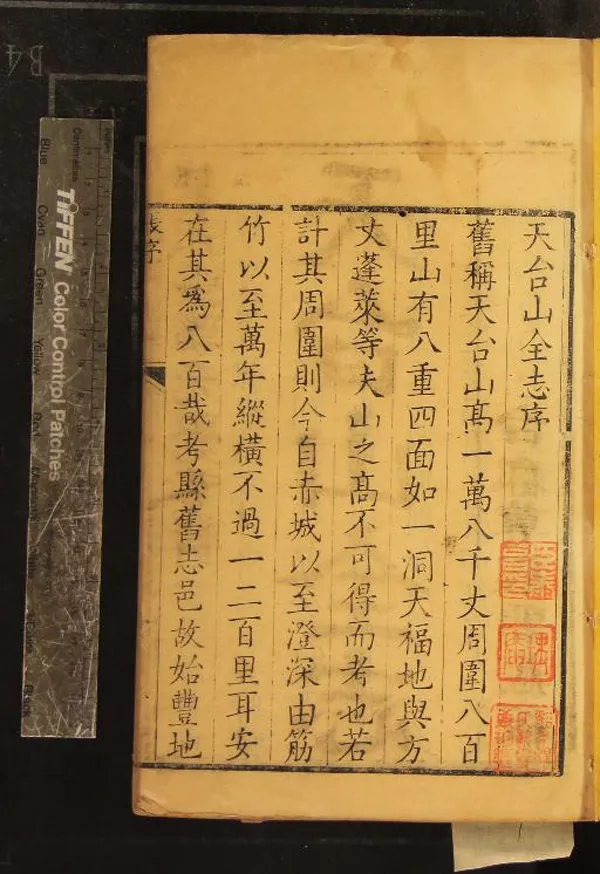 天台山全志序
舊稱天台山高一萬八千丈周圍八百
里山有八重四面如一洞天福地與方
丈蓬萊等夫山之高不可得而考也若
計其周圍則今自赤城以至澄深由筋
竹以至萬年縱橫不過一二百里耳安
在其為八百哉考縣舊志邑故始豐地
張序
B4
TIFFEN Color Control Patches
Centimetres
Blue
Cyan
Green
Yellow
Red
Black